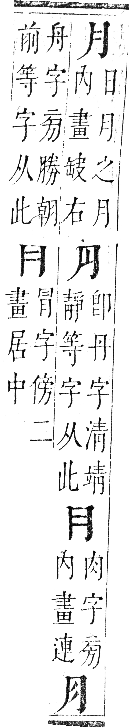 月
日月之月
内畫缺右
円
卽丹字清靖
靜等字从此
月
肉字旁
内畫連
月
舟字旁勝朝
前等字从此
冃
冐字傍二
畫居中